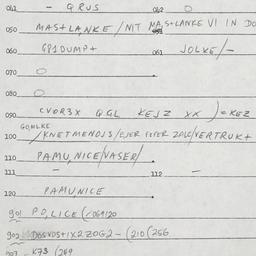 041 - QRUS 042 O
050 MAS+LANKE/NIT MAS+LANKE VI IN DO
060 GP1DUMP+ 061 JOLKE/-
070 O
080 O
090 CVOR3X QGL KEJZ XX )=KEZ
100 /KNETMENOJS/EJER FEFER ZALC/VERTRUK+
110 PAMU,NICE/VASER/
111 - 112 -
120 PAMUNICE
901 PO,LICE(-069120
902 -(210(256
903 K73 (249